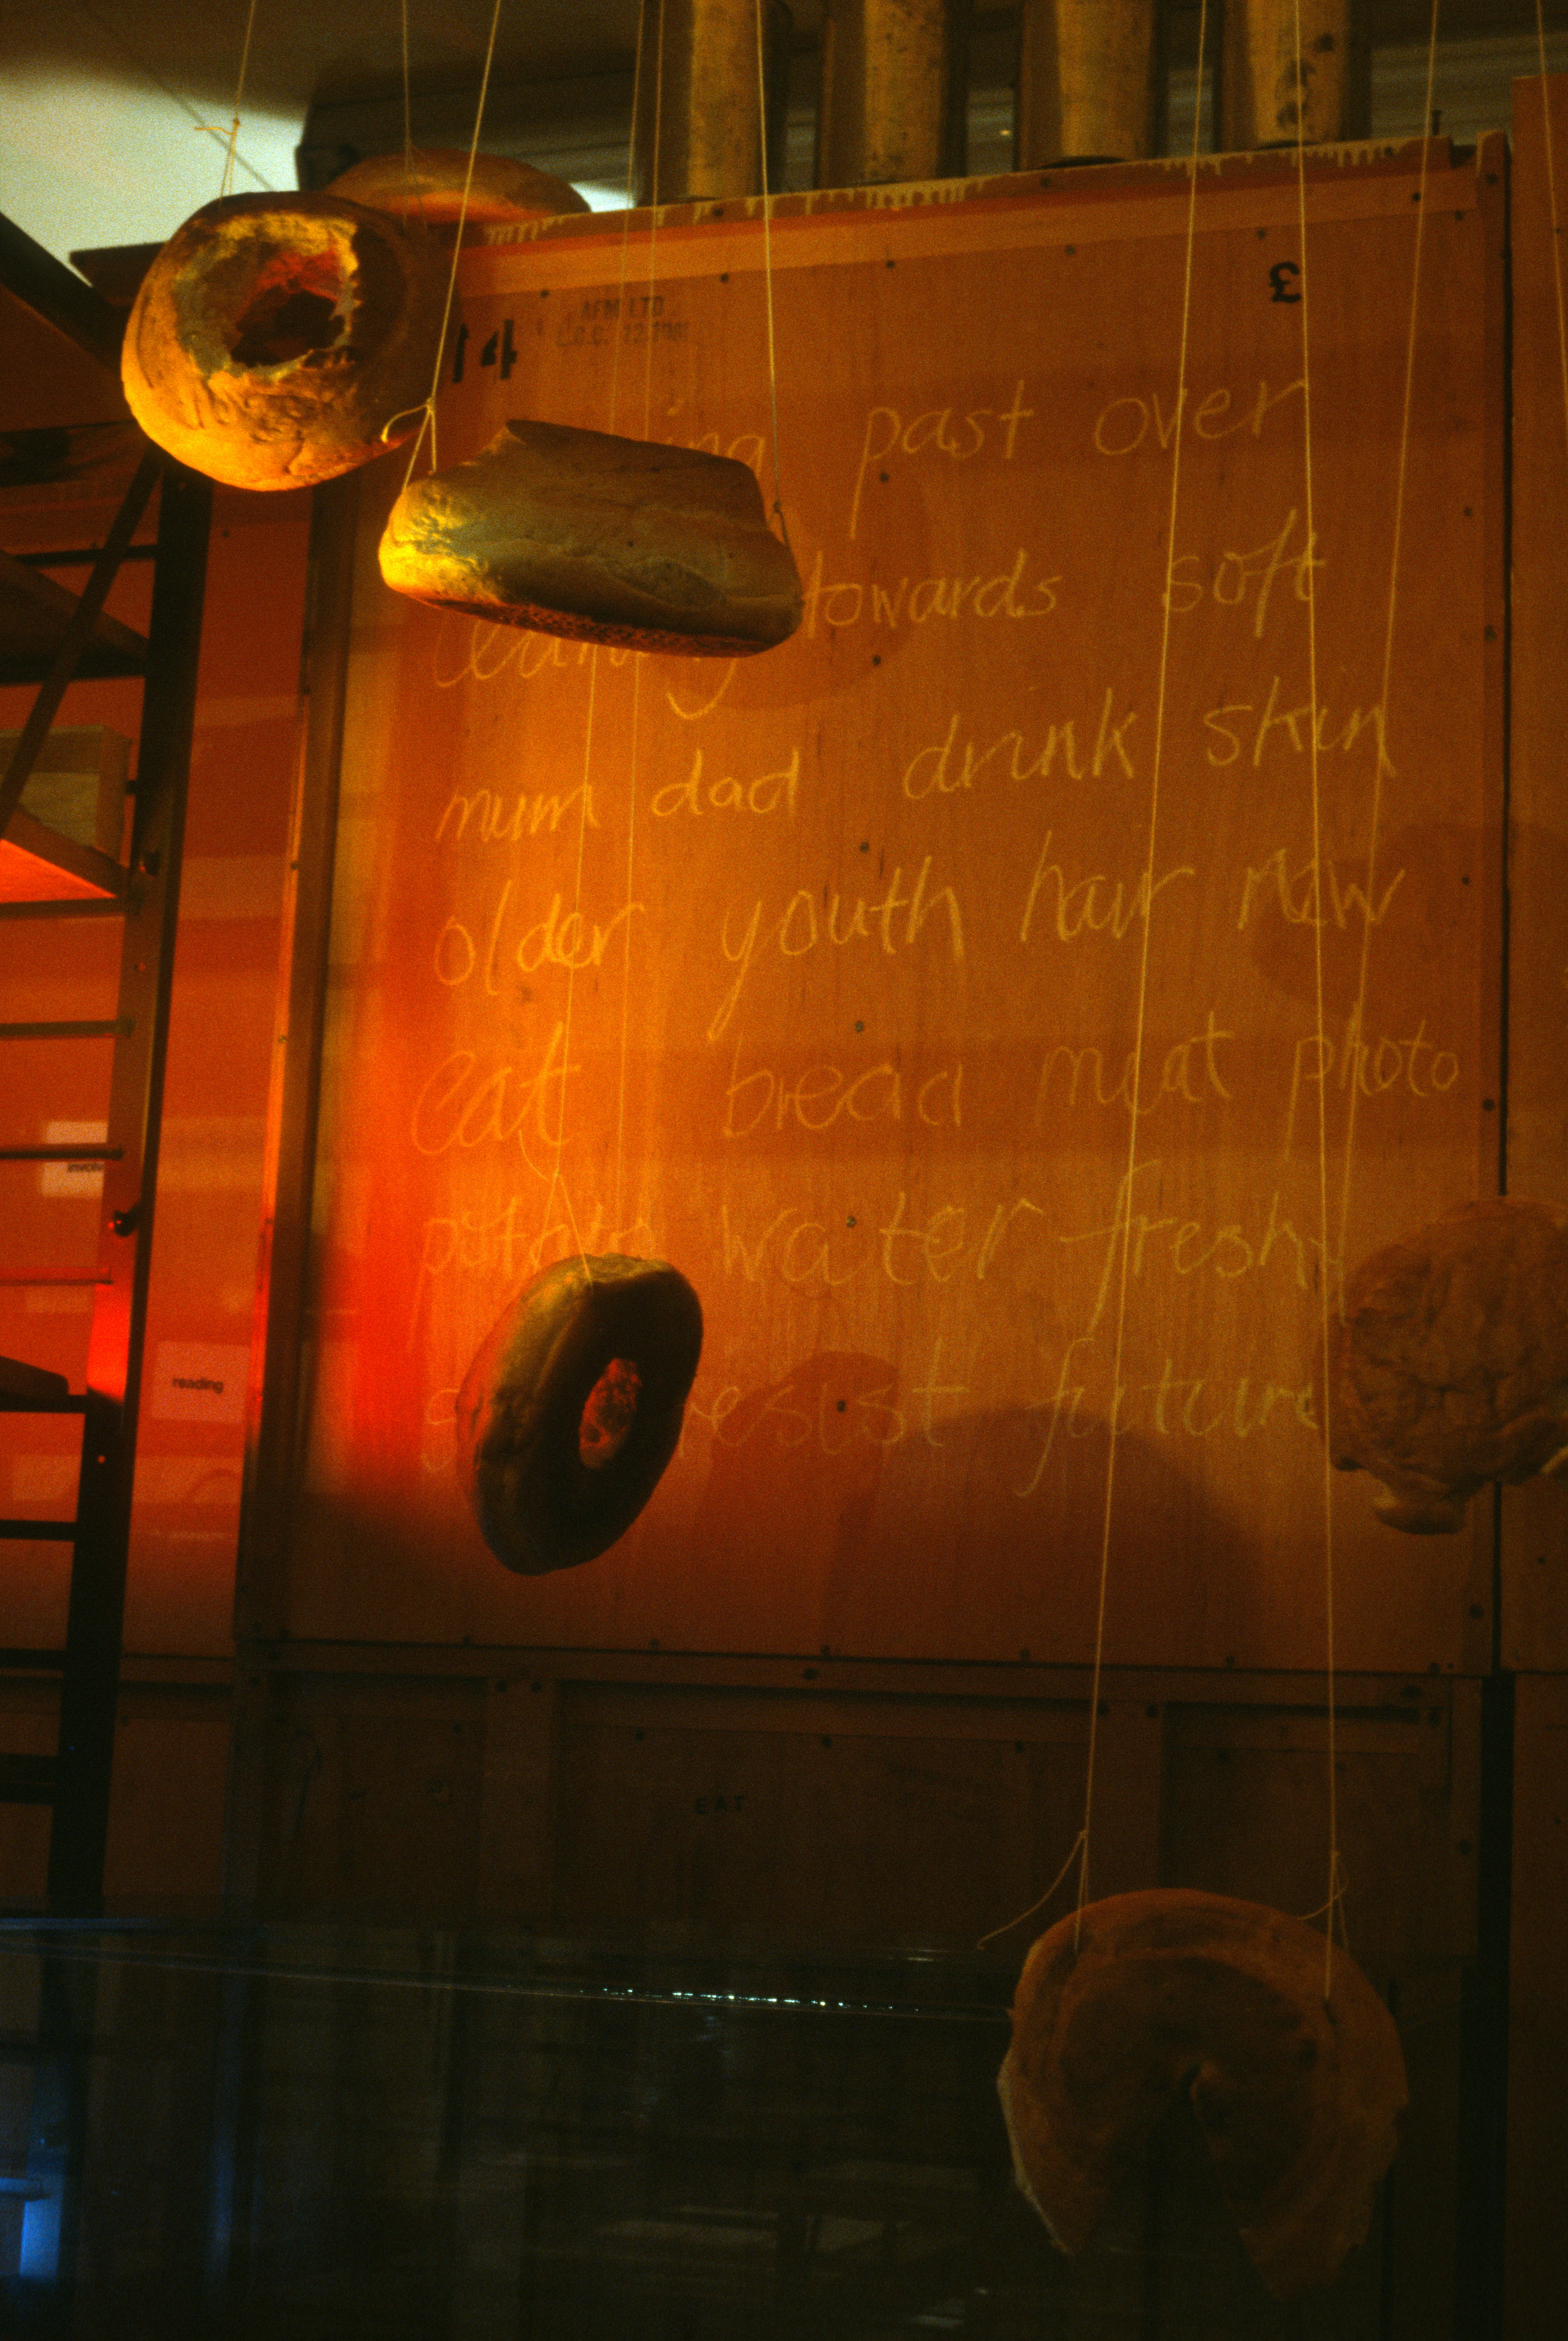 £
14
AFM LTD
past over
towards soft
mum dad drink skin
older youth hair new
eat bread meat photo
potato water fresh
resist future
involv
reading
EAT